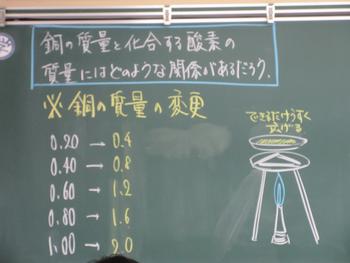 銅の質量と化合する酸素の
質量にはどのような関係があるだろう.
※銅の質量の変更
0.20 → 0.4
0.40 → 0.8
0.60 → 1.2
0.80 → 1.6
1.00 → 2.0
できるだけうすく
広げる